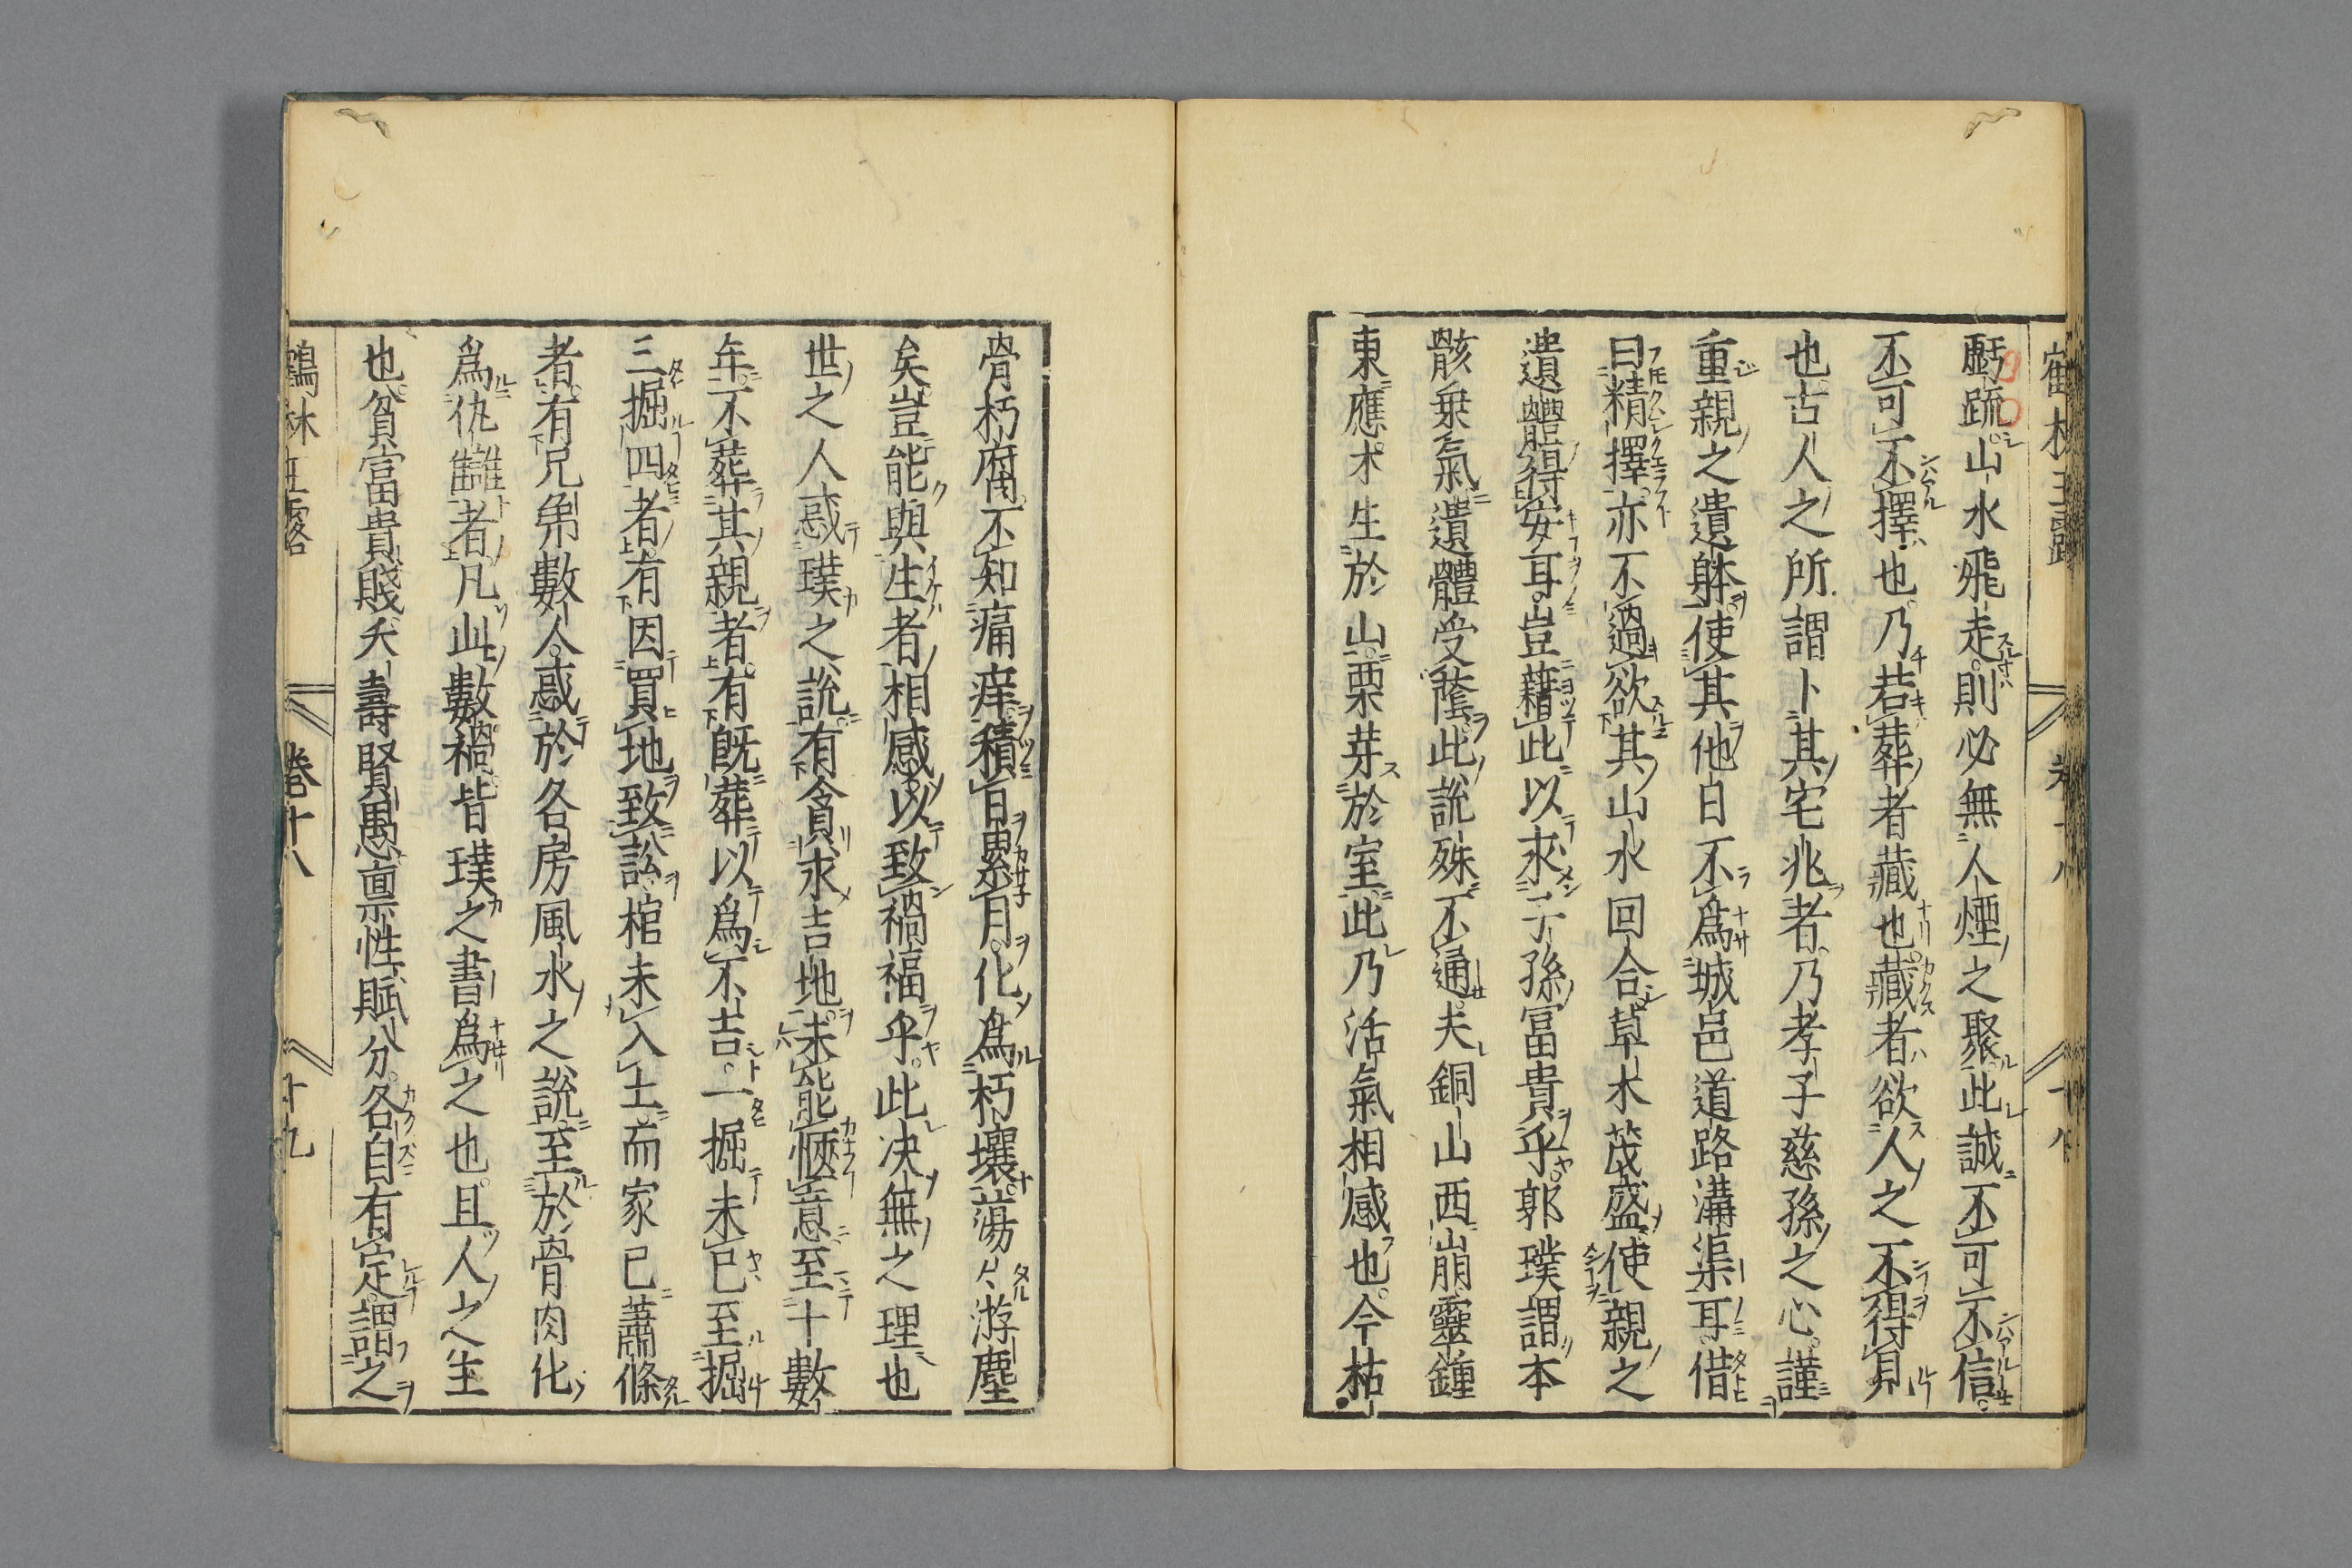 虧疏山水飛走則必無人煙之聚此誠不可不信
不可不擇也乃若葬者藏也藏者欲人之不得見
也古人之所謂卜其宅兆者乃孝子慈孫之心謹
重親之遺躰使其他日不爲城邑道路溝渠耳借
曰精擇亦不過欲其山水回合草木茂盛使親之
遺體得安耳豈藉此以求子孫冨貴乎郭璞謂本
骸乗氣遺體受蔭此説殊不通夫銅山西崩靈鍾
東應木生於山栗芽於室此乃活氣相感也今枯
骨朽腐不知痛痒積日累月化爲朽壤蕩〻游塵
矣豈能與生者相感以致禍福乎此决無之理也
世之人惑璞之説有貪求吉地未能愜意至十數
年不葬其親者有既葬以爲不吉一掘未已至掘
三掘四者有因買地致訟棺未入土而家已蕭條
者有兄弟數人惑於各房風水之説至於骨肉化
爲仇讎者凡此數禍皆璞之書爲之也且人之生
也貧富貴賤夭壽賢愚禀性賦分各自有定謂之
鶴林玉露 卷十八 十九